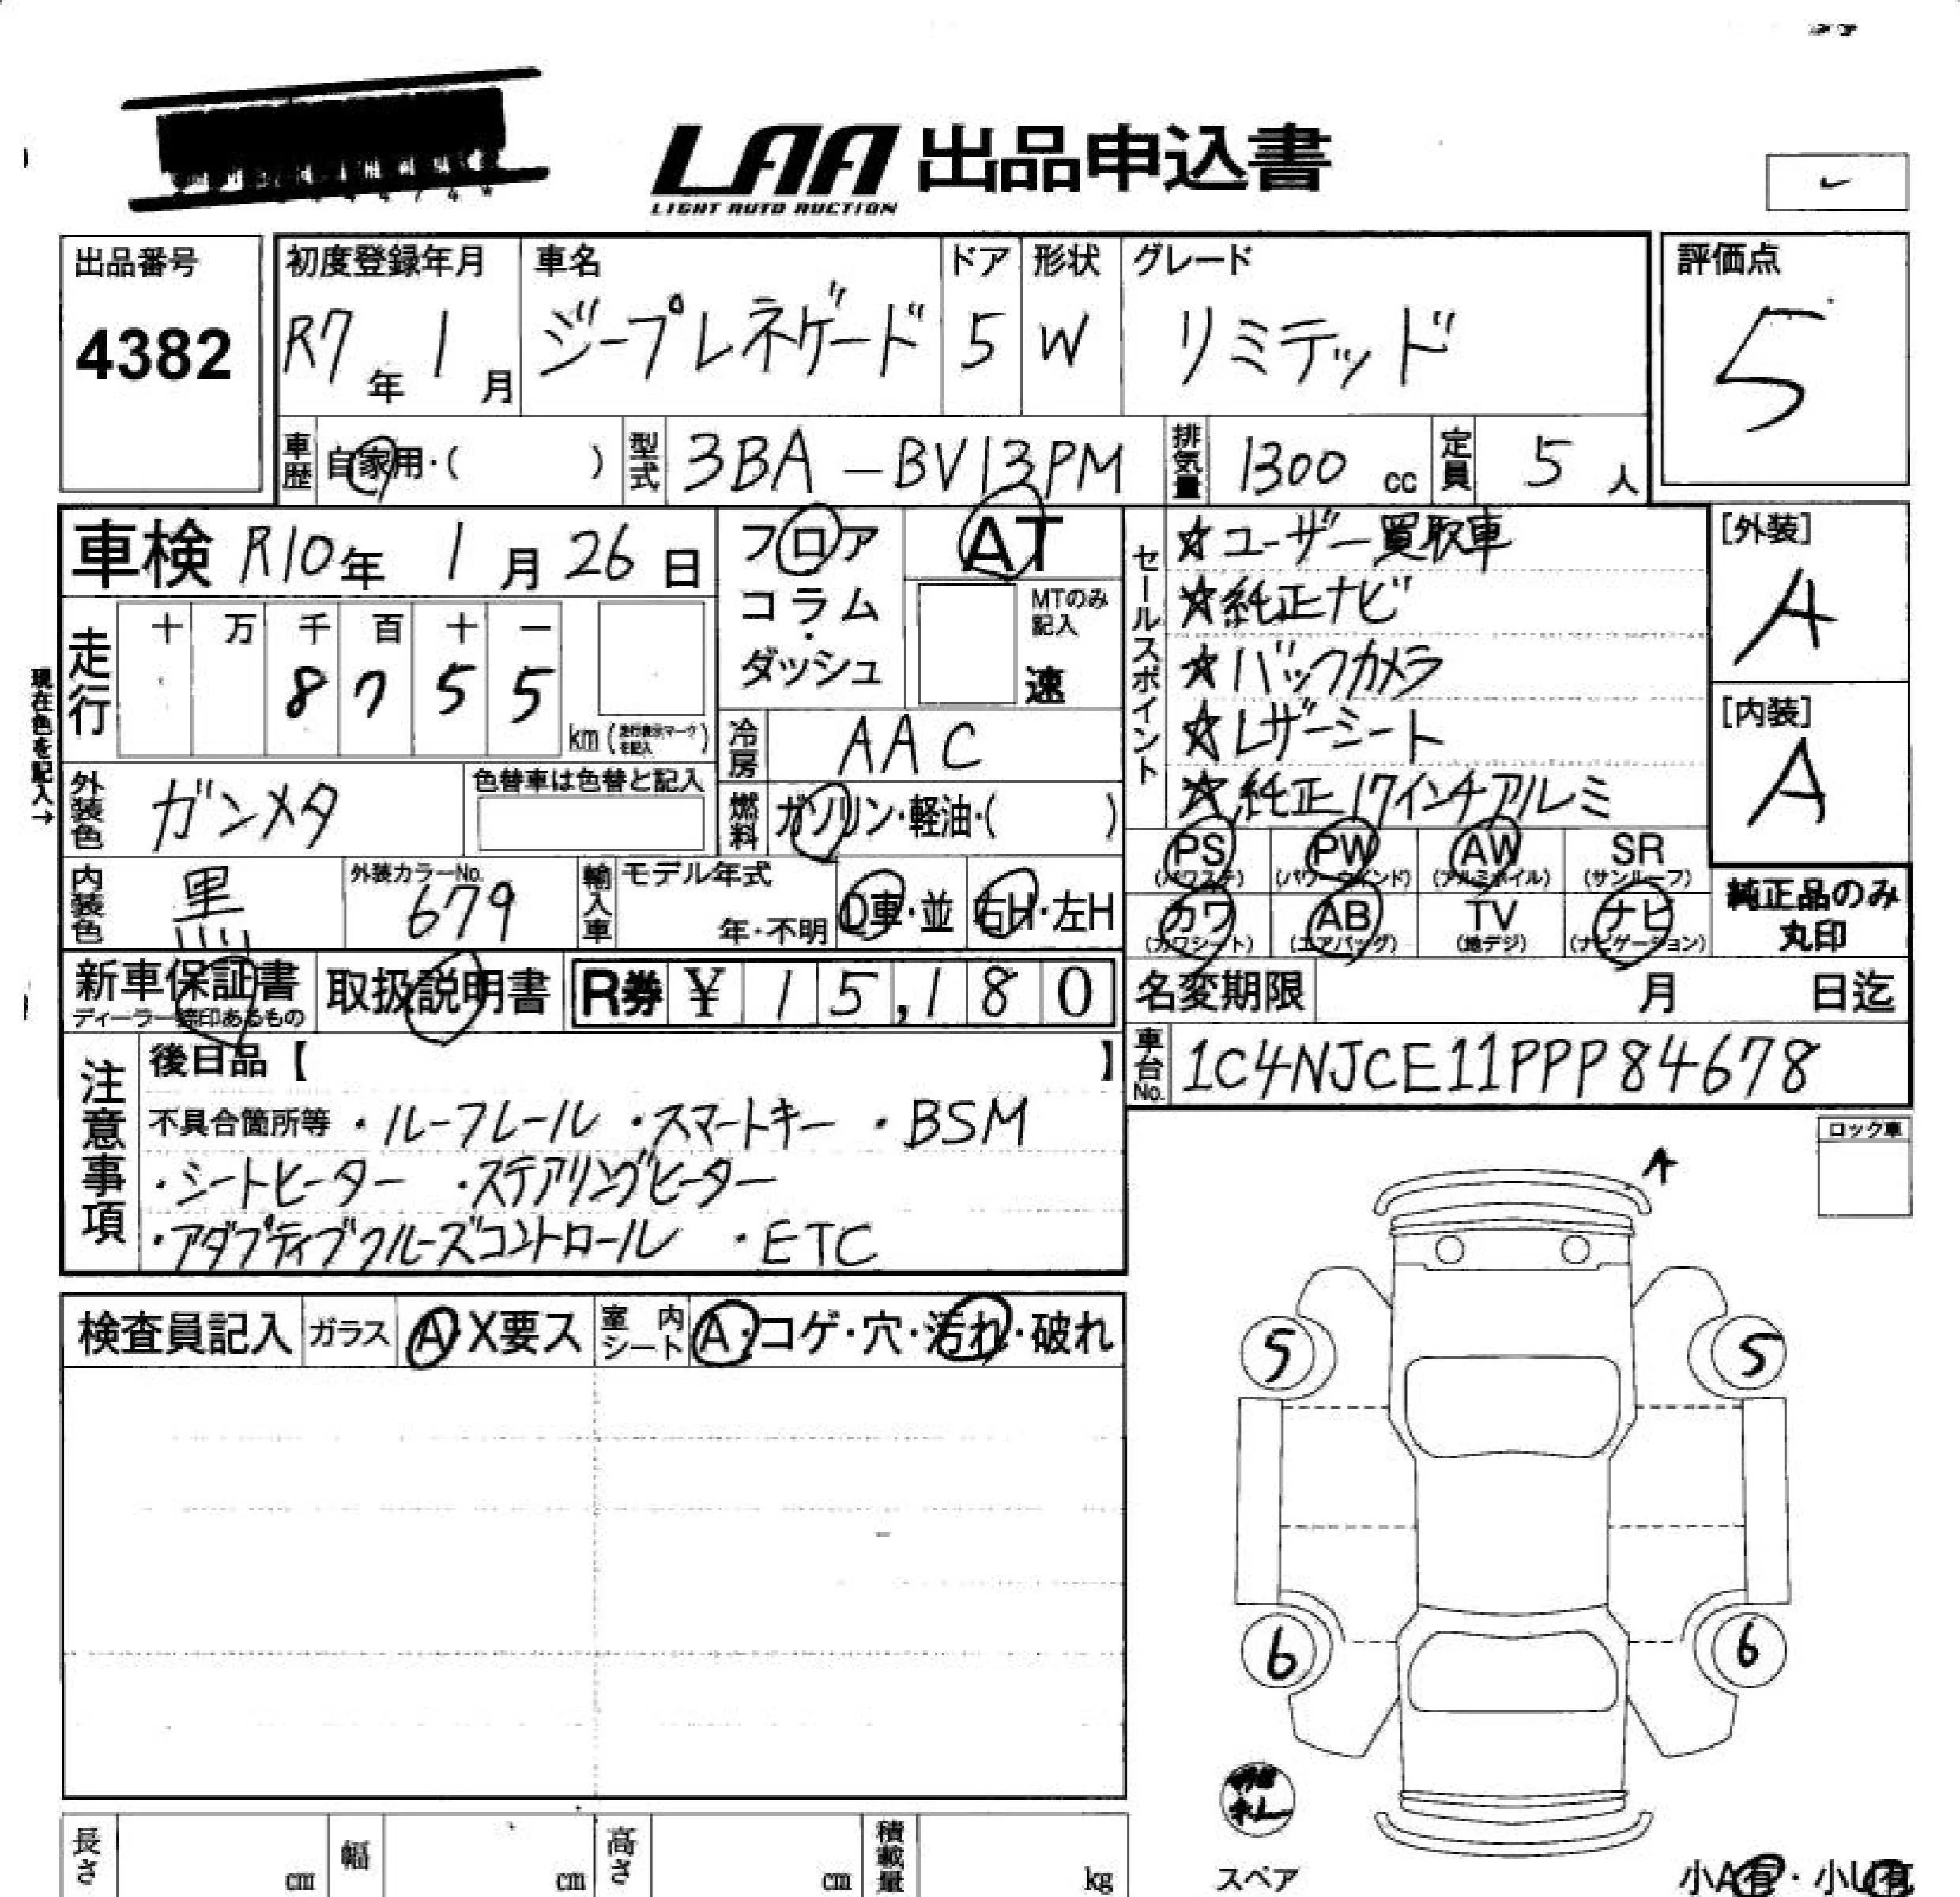 LAA 出品申込書
LIGHT AUTO AUCTION
出品番号
4382
初度登録年月
R7年 1月
車名
ジープレネゲード
ドア
5
形状
W
グレード
リミテッド
評価点
5
車歴 自家用・( )
型式 3BA-BV13PM
排気量 1300 cc
定員 5 人
車検 R10年 1月 26日
現在色を記入→
走行
十 万 千 百 十 一
8 7 5 5
km (走行表示マークを記入)
フロア
コラム
・
ダッシュ
AT
MTのみ記入
速
冷房 AAC
燃料 ガソリン・軽油・( )
外装色 ガンメタ
色替車は色替と記入
内装色 黒
外装カラーNo. 679
輸入車
モデル年式
年・不明
D車・並
右H・左H
セールスポイント
☆ユーザー買取車
☆純正ナビ
☆バックカメラ
☆レザーシート
☆純正17インチアルミ
[外装]
A
[内装]
A
PS (パワステ)
PW (パワーウインド)
AW (アルミホイル)
SR (サンルーフ)
カワ (カワシート)
AB (エアバッグ)
TV (地デジ)
ナビ (ナビゲーション)
純正品のみ
丸印
新車保証書
ディーラー締印あるもの
取扱説明書
R券 ¥ 15,180
名変期限 月 日迄
車台No. 1C4NJCE11PPP84678
注意事項
後日品【 】
不具合箇所等 ・ルーフレール ・スマートキー ・BSM
・シートヒーター ・ステアリングヒーター
・アダプティブクルーズコントロール ・ETC
ロック車
A
検査員記入
ガラス A・X要ス
室内シート A・コゲ・穴・汚れ・破れ
5 5
6 6
スペア
長さ cm
幅 cm
高さ cm
積載量 kg
小A有・小U有